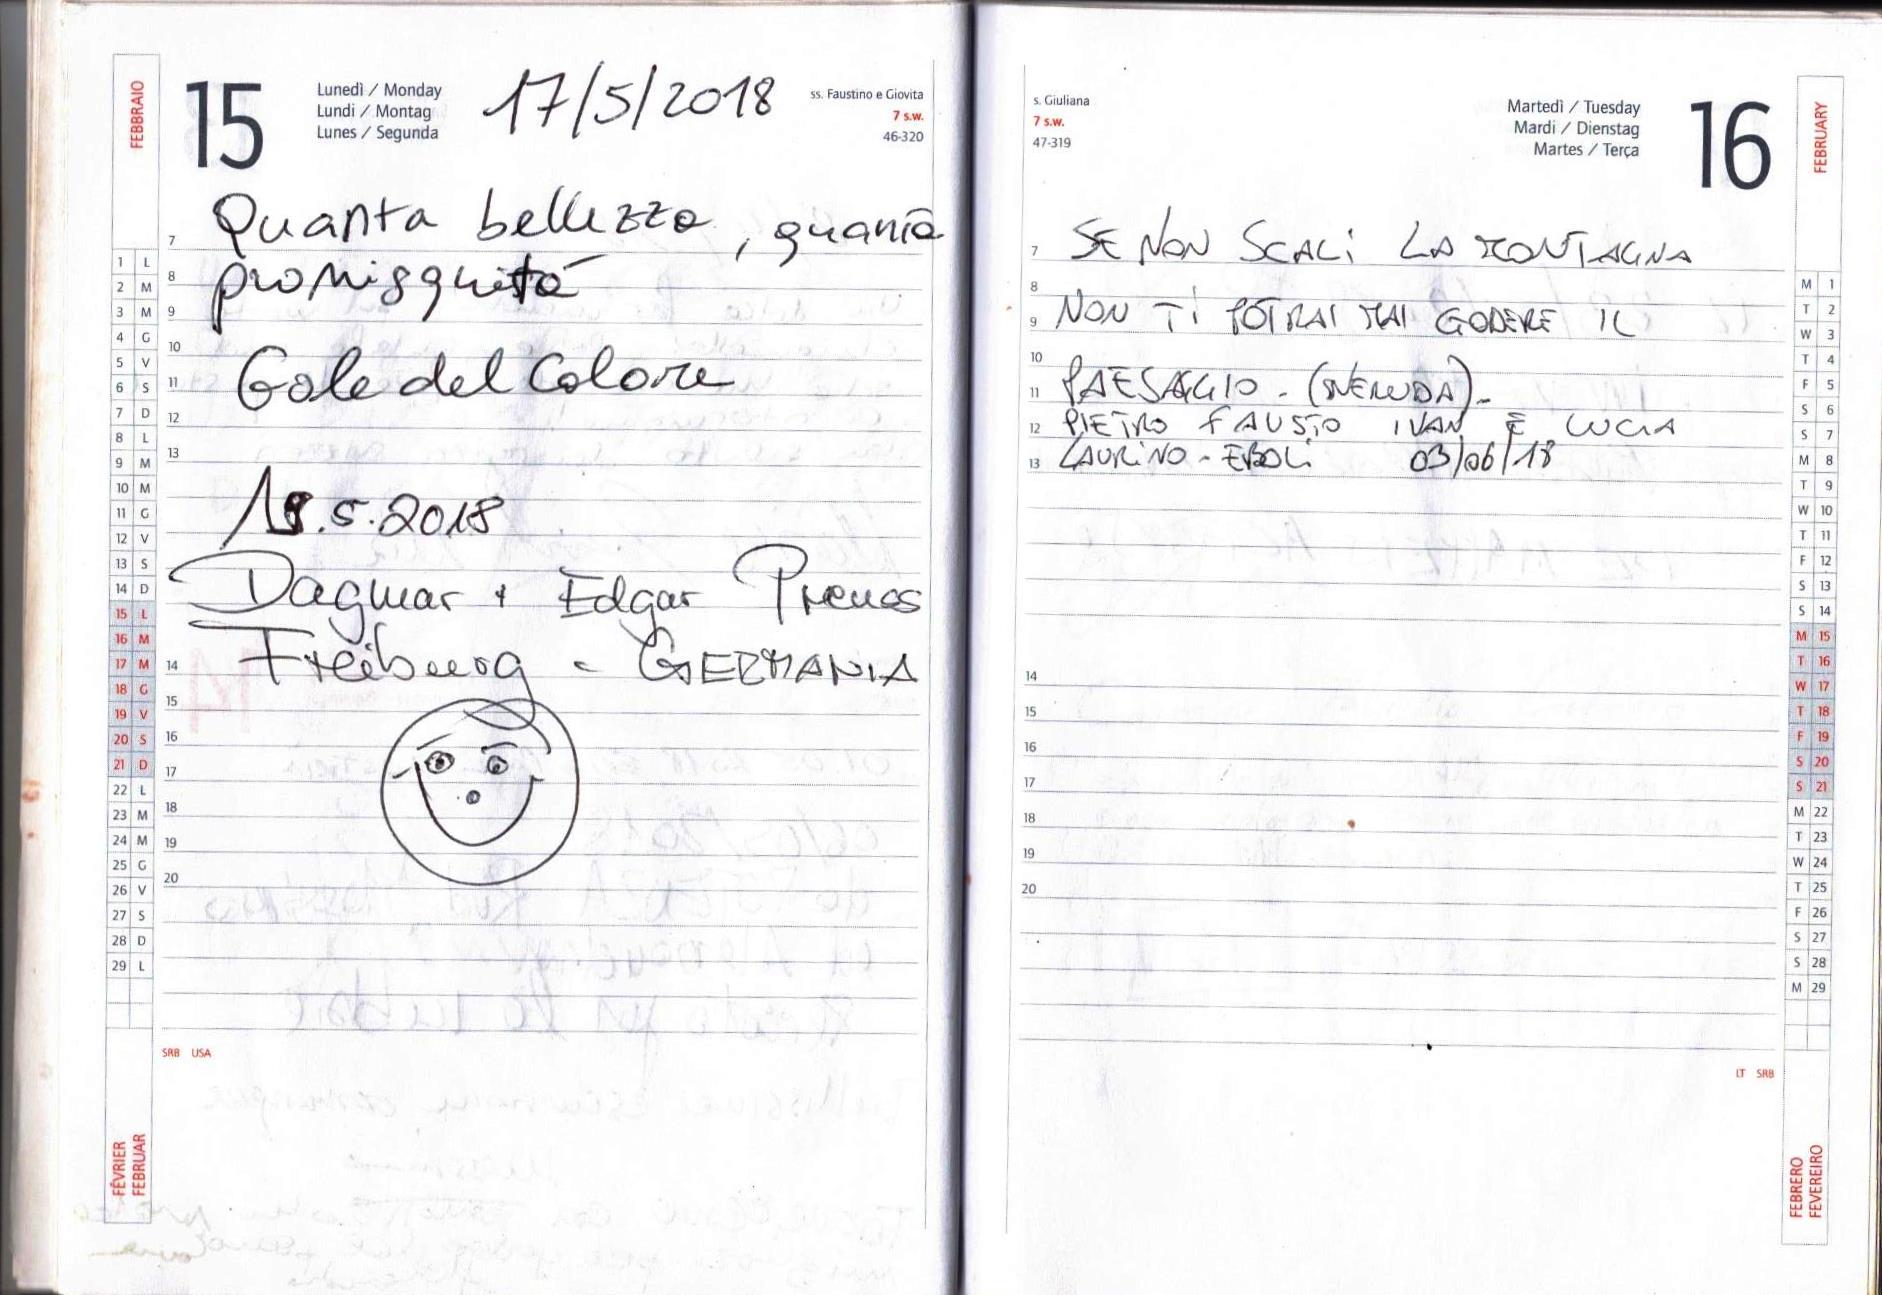 FEBBRAIO
15
Lunedì / Monday
Lundi / Montag
Lunes / Segunda
17/5/2018
ss. Faustino e Giovita
7 s.w.
46-320
Quanta bellezza, quanta
promisquità
Gole del Calore
18.5.2018
Dagmar + Edgar Preuss
Freiburg - GERMANIA
7
8
9
10
11
12
13
14
15
16
17
18
19
20
1 L
2 M
3 M
4 G
5 V
6 S
7 D
8 L
9 M
10 M
11 G
12 V
13 S
14 D
15 L
16 M
17 M
18 G
19 V
20 S
21 D
22 L
23 M
24 M
25 G
26 V
27 S
28 D
29 L
SRB USA
FÉVRIER
FEBRUAR
s. Giuliana
7 s.w.
47-319
Martedì / Tuesday
Mardi / Dienstag
Martes / Terça
16
FEBRUARY
SE NON SCALI LA MONTAGNA
NON TI POTRAI MAI GODERE IL
PAESAGGIO - (NERUDA) -
PIETRO FAUSTO IVAN E LUCIA
LAURINO - EBOLI 03/06/18
7
8
9
10
11
12
13
14
15
16
17
18
19
20
M 1
T 2
W 3
T 4
F 5
S 6
S 7
M 8
T 9
W 10
T 11
F 12
S 13
S 14
M 15
T 16
W 17
T 18
F 19
S 20
S 21
M 22
T 23
W 24
T 25
F 26
S 27
S 28
M 29
LT SRB
FEBRERO
FEVEREIRO